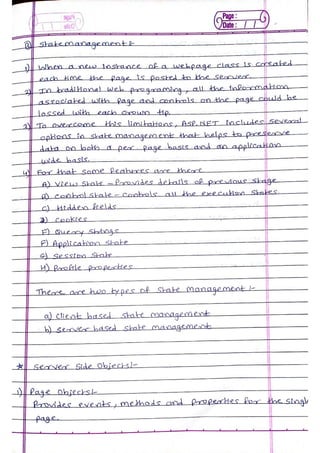 Page:
Date:
Q) State management :-
1) When a new instance of a webpage class is created
each time the page is posted to the server.
2) In traditional web programing, all the information
associated with page and controls on the page could be
lossed with each round trip.
3) To overcome this limitations, ASP.NET includes several
options in state management that helps to preserve
data on both a per page basis and an application
wide basis.
4) For that some features are there
A) View State - Provides details of previous stage
B) control state - controls all the execution states
C) Hidden fields
D) cookies
F) Query Strings
F) Application state
G) Session State
H) Profile properties
There are two types of state management :-
a) Client based state management
b) server based state management
* Server Side Objects :-
1) Page Object :-
Provides events, methods and properties for the singl
page.